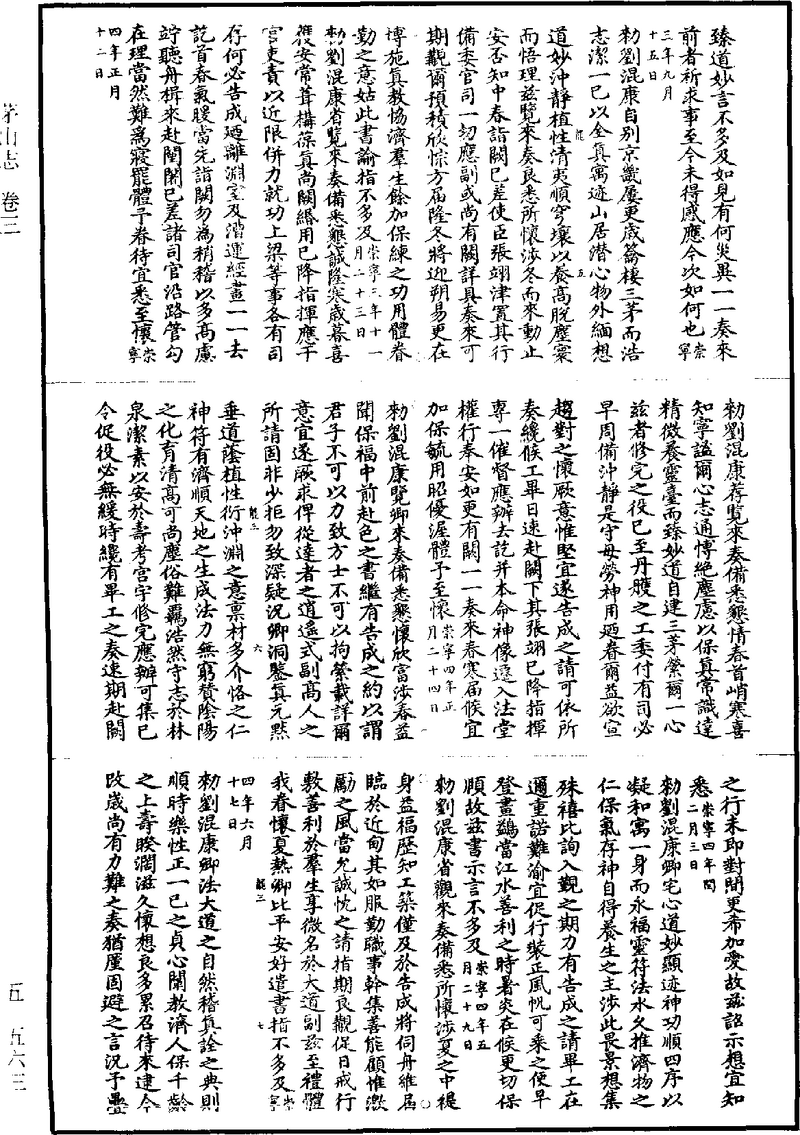 臻道妙言不多及如見有何災異一一奏來
前者祈求事至今未得感應今次如何也崇寧
三年九月
十五日
勑劉混康自别京畿屢更歲籥棲三茅而浩
志潔一已以全真寓迹山居潜心物外緬想
道妙沖靜植性清夷順穹壤以養高脫塵寰
而悟理兹覽來奏良悉所懷涉冬而來動止
安否知中春詣闕已差使臣張翊津置其行
備委官司一切應副或尚有闕詳具奏來可
期觀爾預積欣悰方届隆冬將迎朔易更在
博施真教協濟羣生餘加保練之功用體眷
勤之意姑此書諭指不多及崇寧三年十一
月二十三日
勑劉混康省覽來奏備悉懇誠隆寒歲暮喜
獲安常葺構葆真尚闕緡用已降指揮應于
宫吏責以近限併力就功上梁等事各有司
存何必告成迺離淵室及漕運經畫一一去
訖首春氣暖當先詣闕勿為稍稽以多高慮
竚聽舟楫來赴閶闔已差諸司官沿路管勾
在理當然難為寢罷體予眷待宜悉至懷崇寧
四年正月
十二日
勑劉混康荐覽來奏備悉懇情春首峭寒喜
知寧謐爾心志通博絶塵慮以保真常識達
精微養靈臺而臻妙道自建三茅縈爾一心
兹者修完之役已至丹雘之工委付有司必
早周備沖靜是守毋勞神用廼眷爾益欲宣
趨對之懷厥意惟堅宜遂告成之請可依所
奏纔候工畢日速赴闕下其張翊已降指揮
專一催督應辦去訖并本命神像遷入法堂
權行奉安如更有闕一一奏來春寒届候宜
加保毓用昭優渥體予至懷崇寧四年正
月二十四日
勑劉混康覽卿來奏備悉懇懷欣富涉春益
聞保福中前赴邑之書繼有告成之約以謂
君子不可以力致方士不可以拘縶載詳爾
意宜遂厥求俾從達者之逍遙式副高人之
所請固非少拒勿致深疑況卿洞鑒真元默
垂道蔭植性衍沖淵之意禀材多介恪之仁
神符有濟順天地之生成法力無窮贊陰陽
之化育清高可尚塵俗難羈浩然守志於林
泉潔素以安於壽考宫宇修完應辦可集已
令促役必無緩時纔有畢工之奏速期赴闕
之行未即對間更希加愛故兹詔示想宜知
悉崇寧四年閏
二月三日
勑劉混康卿宅心道妙顯迹神功順四序以
凝和寓一身而永福靈符法水久推濟物之
仁保氣存神自得養生之主涉此畏景想集
殊禧比詢入覲之期乃有告成之請畢工在
邇重諾難渝宜促行裝正風帆可乘之便早
登畫鷁當江水善利之時暑炎在候更切保
順故兹書示言不多及崇寧四年五
月二十九日
勑劉混康省觀來奏備悉所懷涉夏之中禔
身益福歷知工築僅及於告成將伺舟維届
臨於近甸其如服勤職事幹集喜能顧惟激
勵之風當允誠忱之請指期良觀促日戒行
敷善利於羣生享微名於大道副兹至禮體
我眷懷夏熱卿比平安好遣書指不多及崇寧
四年六月
十七日
勑劉混康卿法大道之自然稽真詮之典則
順時樂性正一已之貞心闡教濟人保千齡
之上壽暌濶滋久懷想良多累召待來逮今
改歲尚有力難之奏猶屢固避之言況予疊
茅山志　卷三
五　五六三